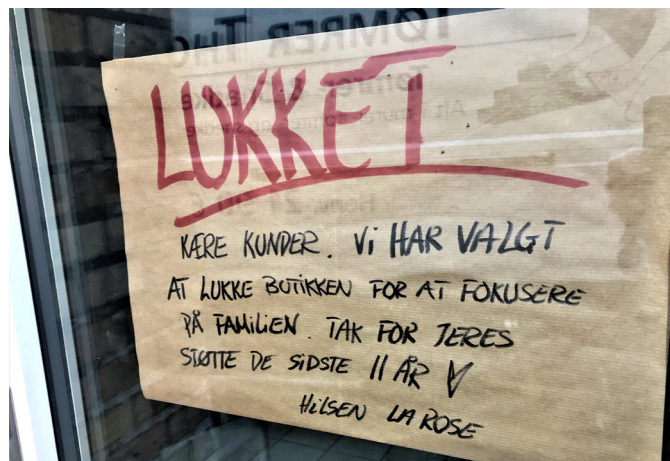 TØMRER
LUKKET
KÆRE KUNDER. Vi HAR VALGT
AT LUKKE BUTIKKEN FOR AT FOKUSERE
PÅ FAMiLiEN. TAK FOR JERES
STØTTE DE SiDSTE 11 ÅR
HiLSEN LA ROSE